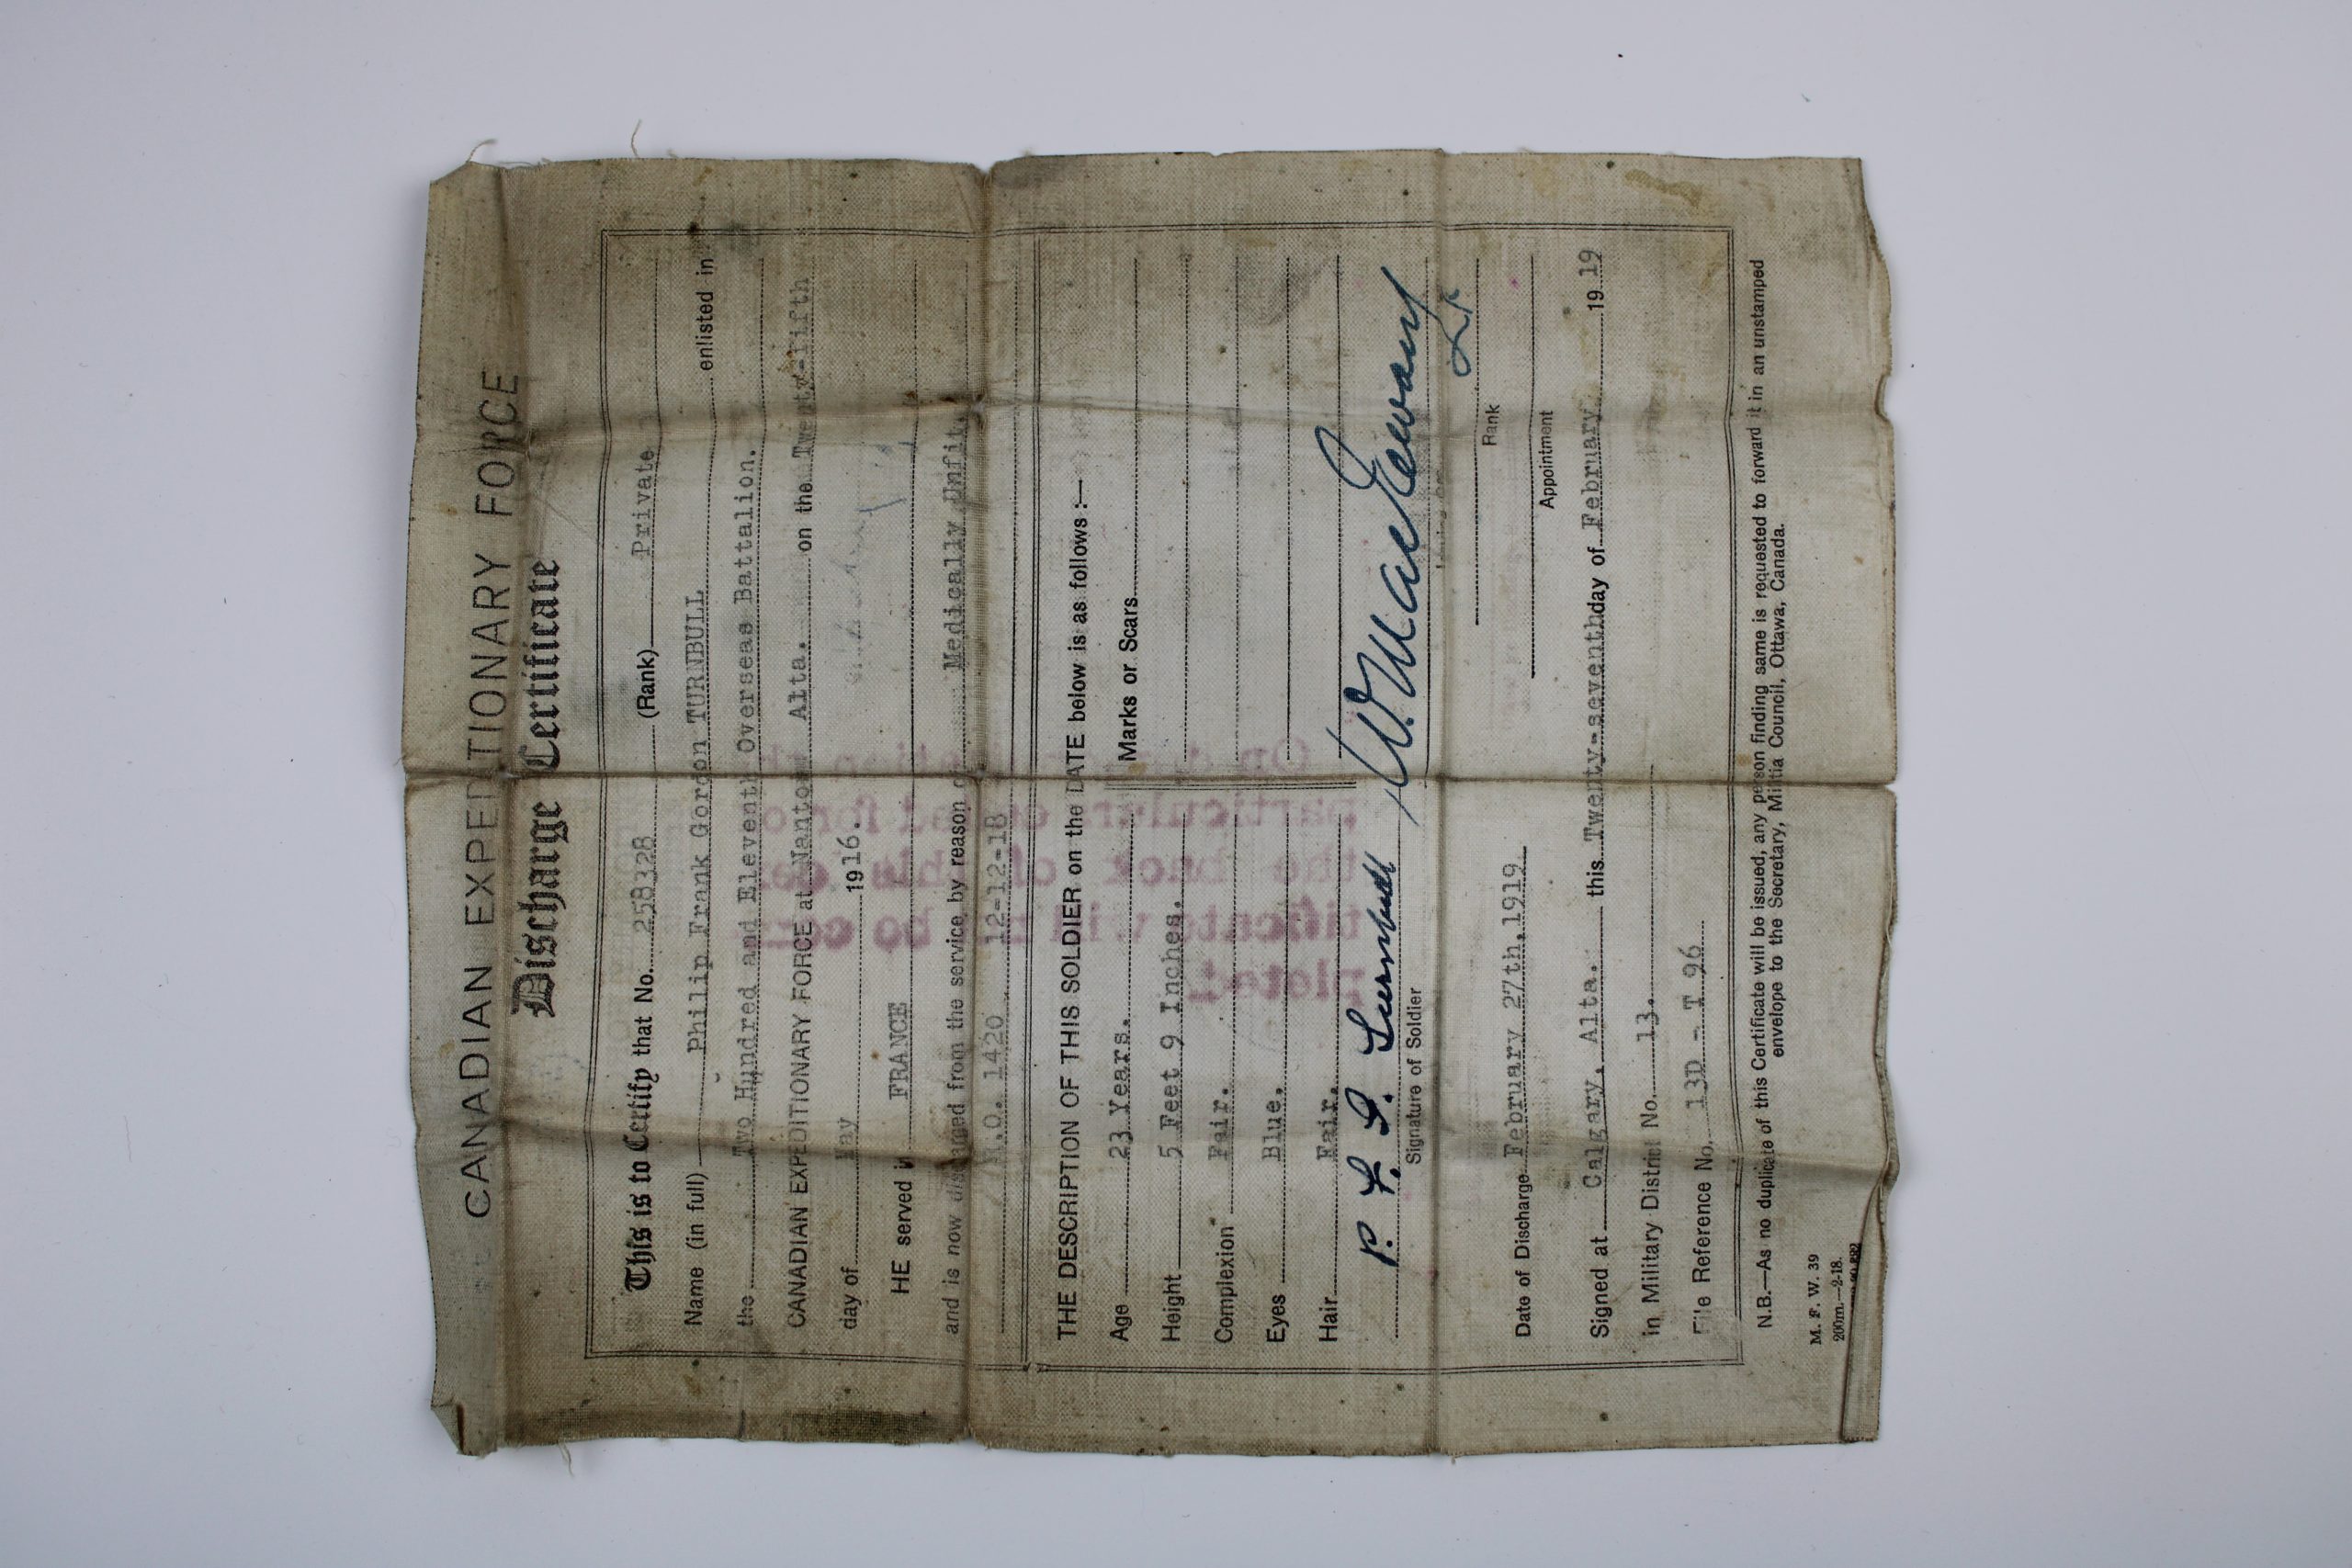 CANADIAN EXPEDITIONARY FORCE
Discharge Certificate
This is to Certify that No. 258328 (Rank) Private
Name (in full) Philip Frank Gordon TURNBULL enlisted in
the Two Hundred and Eleventh Overseas Battalion.
CANADIAN EXPEDITIONARY FORCE at Nanton Alta. on the Twenty-fifth
day of May 1916.
HE served in FRANCE
and is now discharged from the service by reason of Medically Unfit.
R.O. 1420 12-12-18
THE DESCRIPTION OF THIS SOLDIER on the DATE below is as follows:—
Age 23 Years. Marks or Scars
Height 5 Feet 9 Inches.
Complexion Fair.
Eyes Blue.
Hair Fair.
P. F. G. Turnbull
Signature of Soldier
Lt
Rank
Appointment
Date of Discharge February 27th, 1919.
Signed at Calgary, Alta. this Twenty-seventh day of February 1919
in Military District No. 13.
File Reference No. 13D - T 96
N.B.—As no duplicate of this Certificate will be issued, any person finding same is requested to forward it in an unstamped
envelope to the Secretary, Militia Council, Ottawa, Canada.
M. F. W. 39
200m.—2-18.